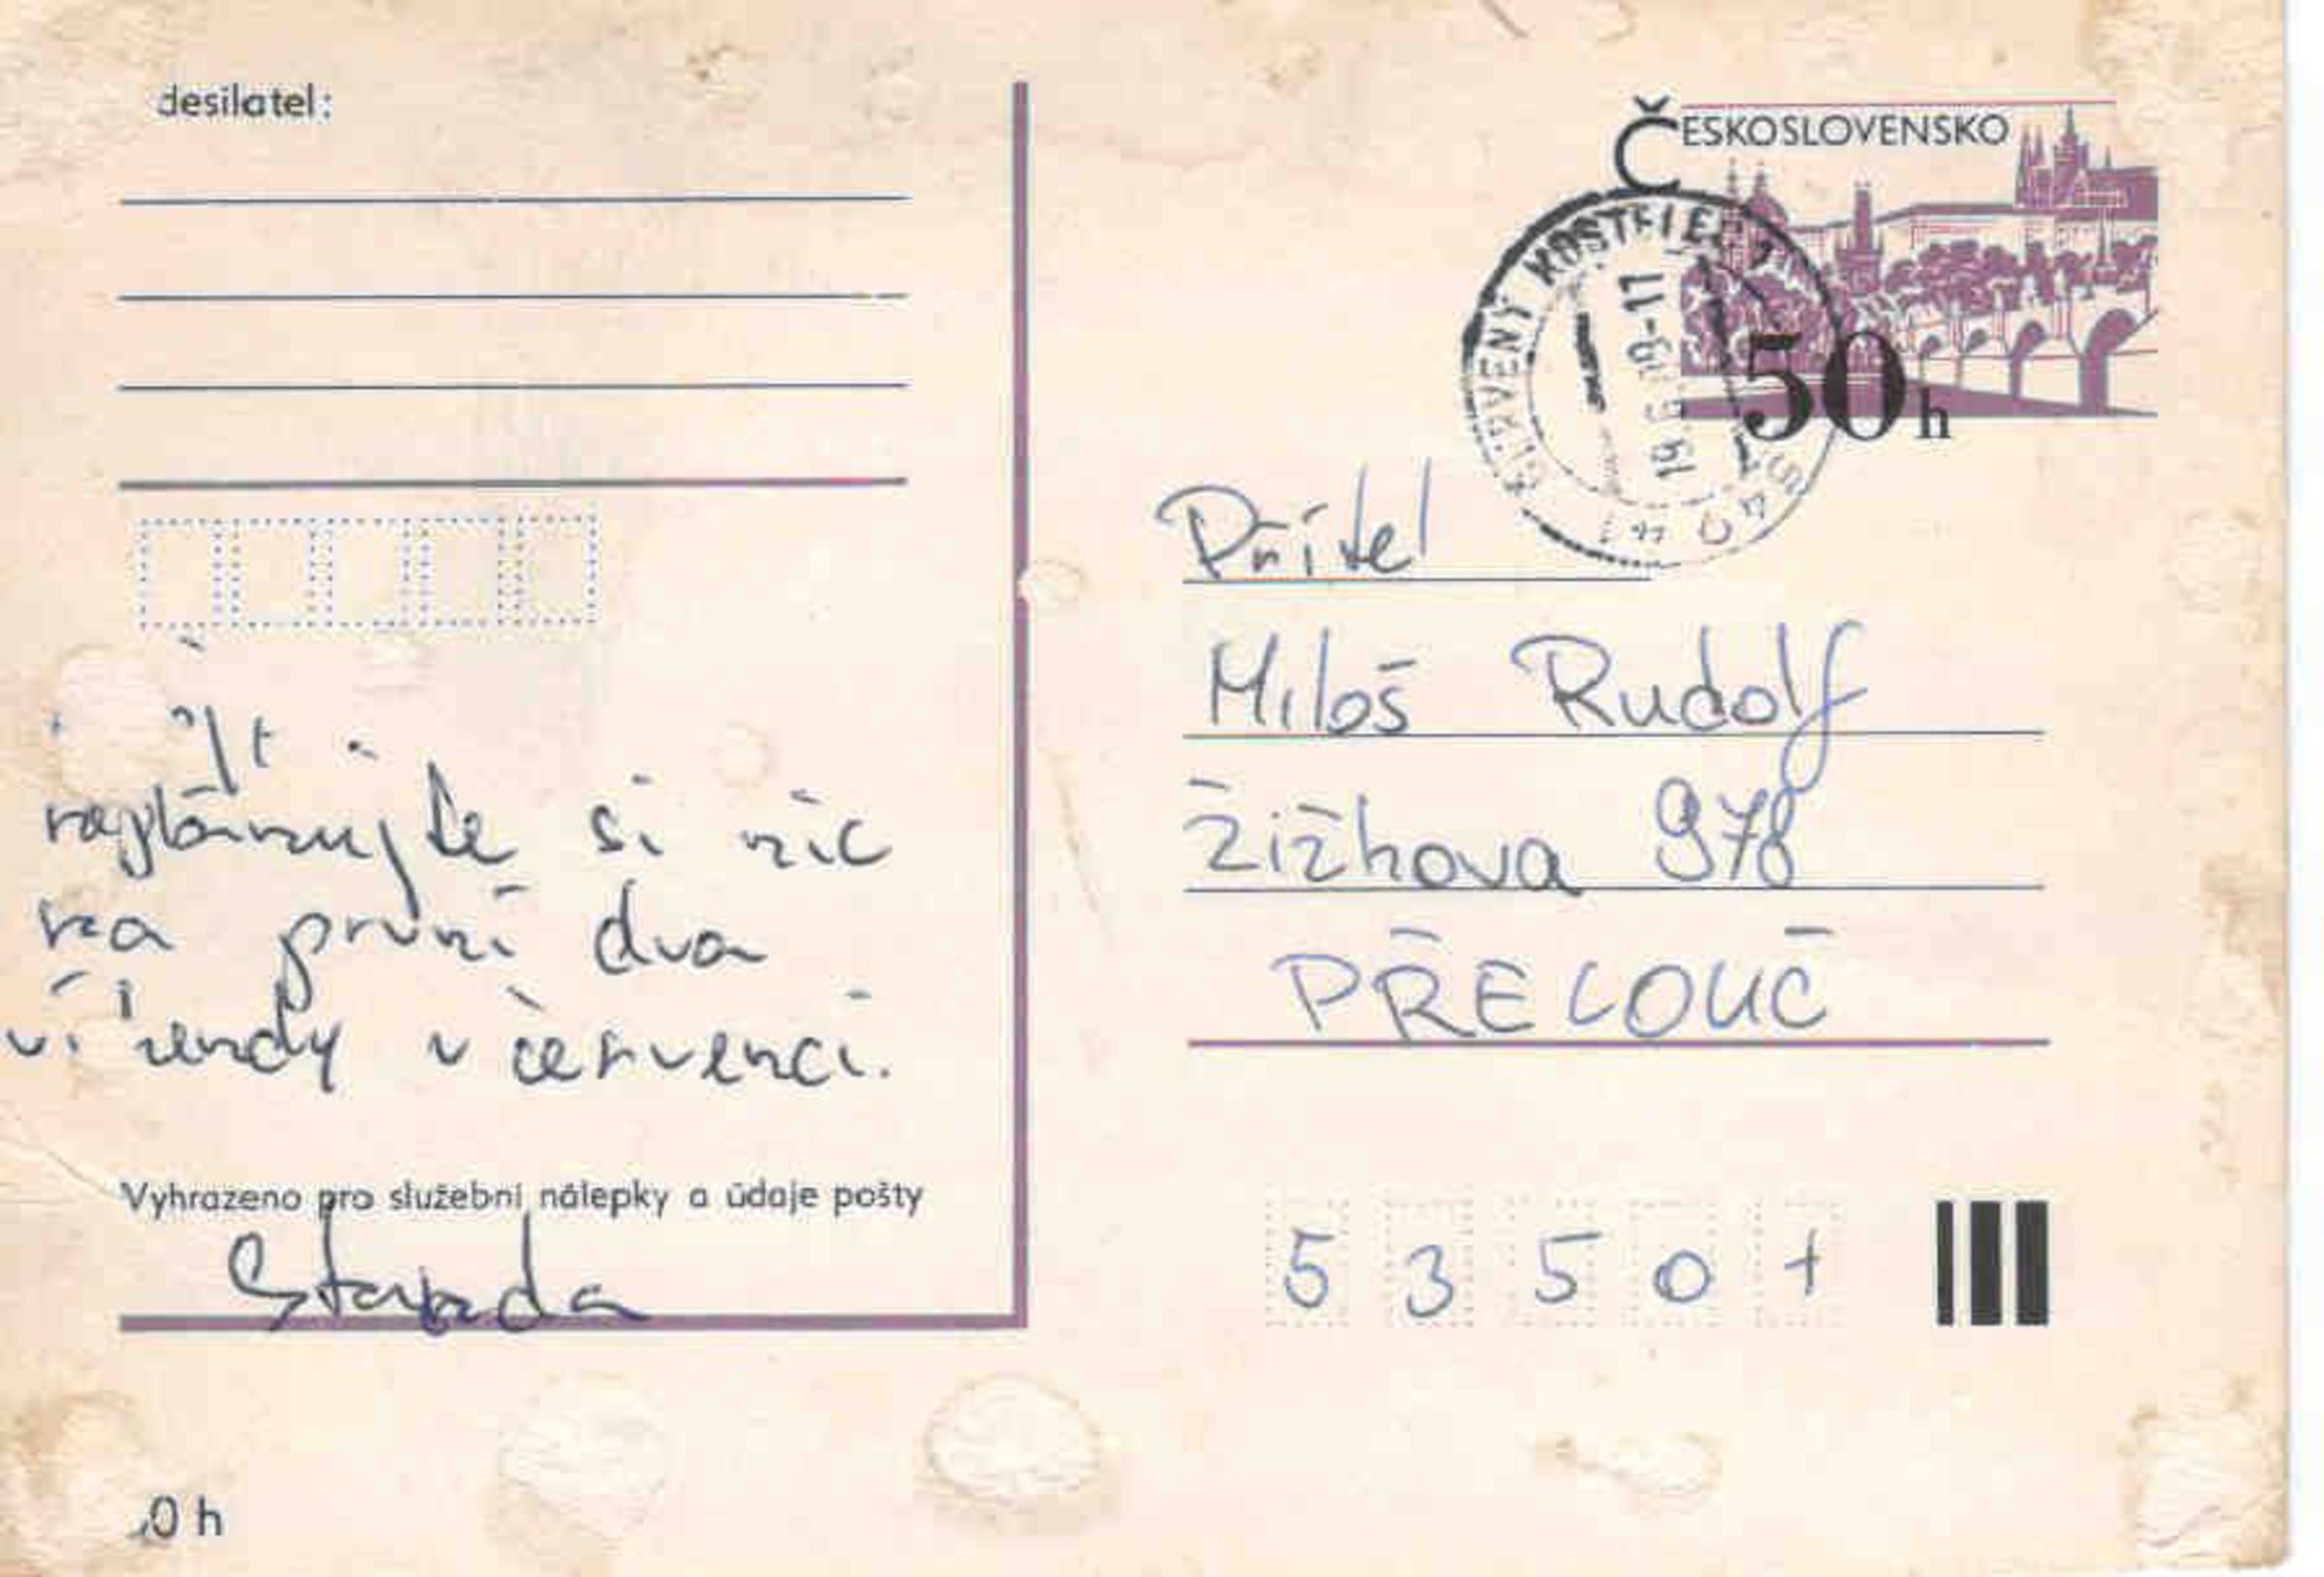 desilatel:
neplánujte si nic
na první dva
víkendy v červenci.
Vyhrazeno pro služební nálepky a údaje pošty
Standa
0 h
ČESKOSLOVENSKO
ČERVENÝ KOSTELEC 1
50 h
Přítel
Miloš Rudolf
Žižkova 978
PŘELOUČ
5 3 5 0 1